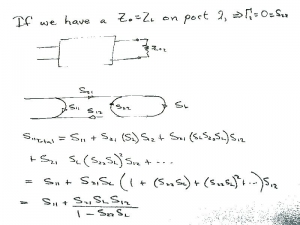 If we have a Z₀=Z_L on port 2, ⇒Γ_L=0=S₂₂
Z₀₂
S₂₁
S₁₁ S₂₂ S_L
S₁₂
S₁₁Total = S₁₁ + S₂₁ (S_L) S₁₂ + S₂₁ (S_L S₂₂ S_L) S₁₂
+ S₂₁ S_L (S₂₂ S_L)² S₁₂ + ...
= S₁₁ + S₂₁ S_L ( 1 + (S₂₂ S_L) + (S₂₂ S_L)² + ... ) S₁₂
= S₁₁ + S₂₁ S_L S₁₂
1 - S₂₂ S_L